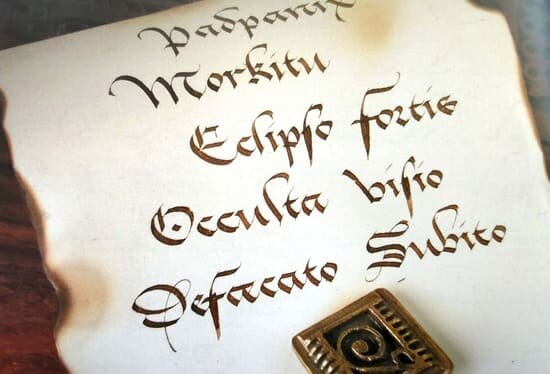 Morkitu
Eclipso fortis
Occulta visio
Defacato Subito